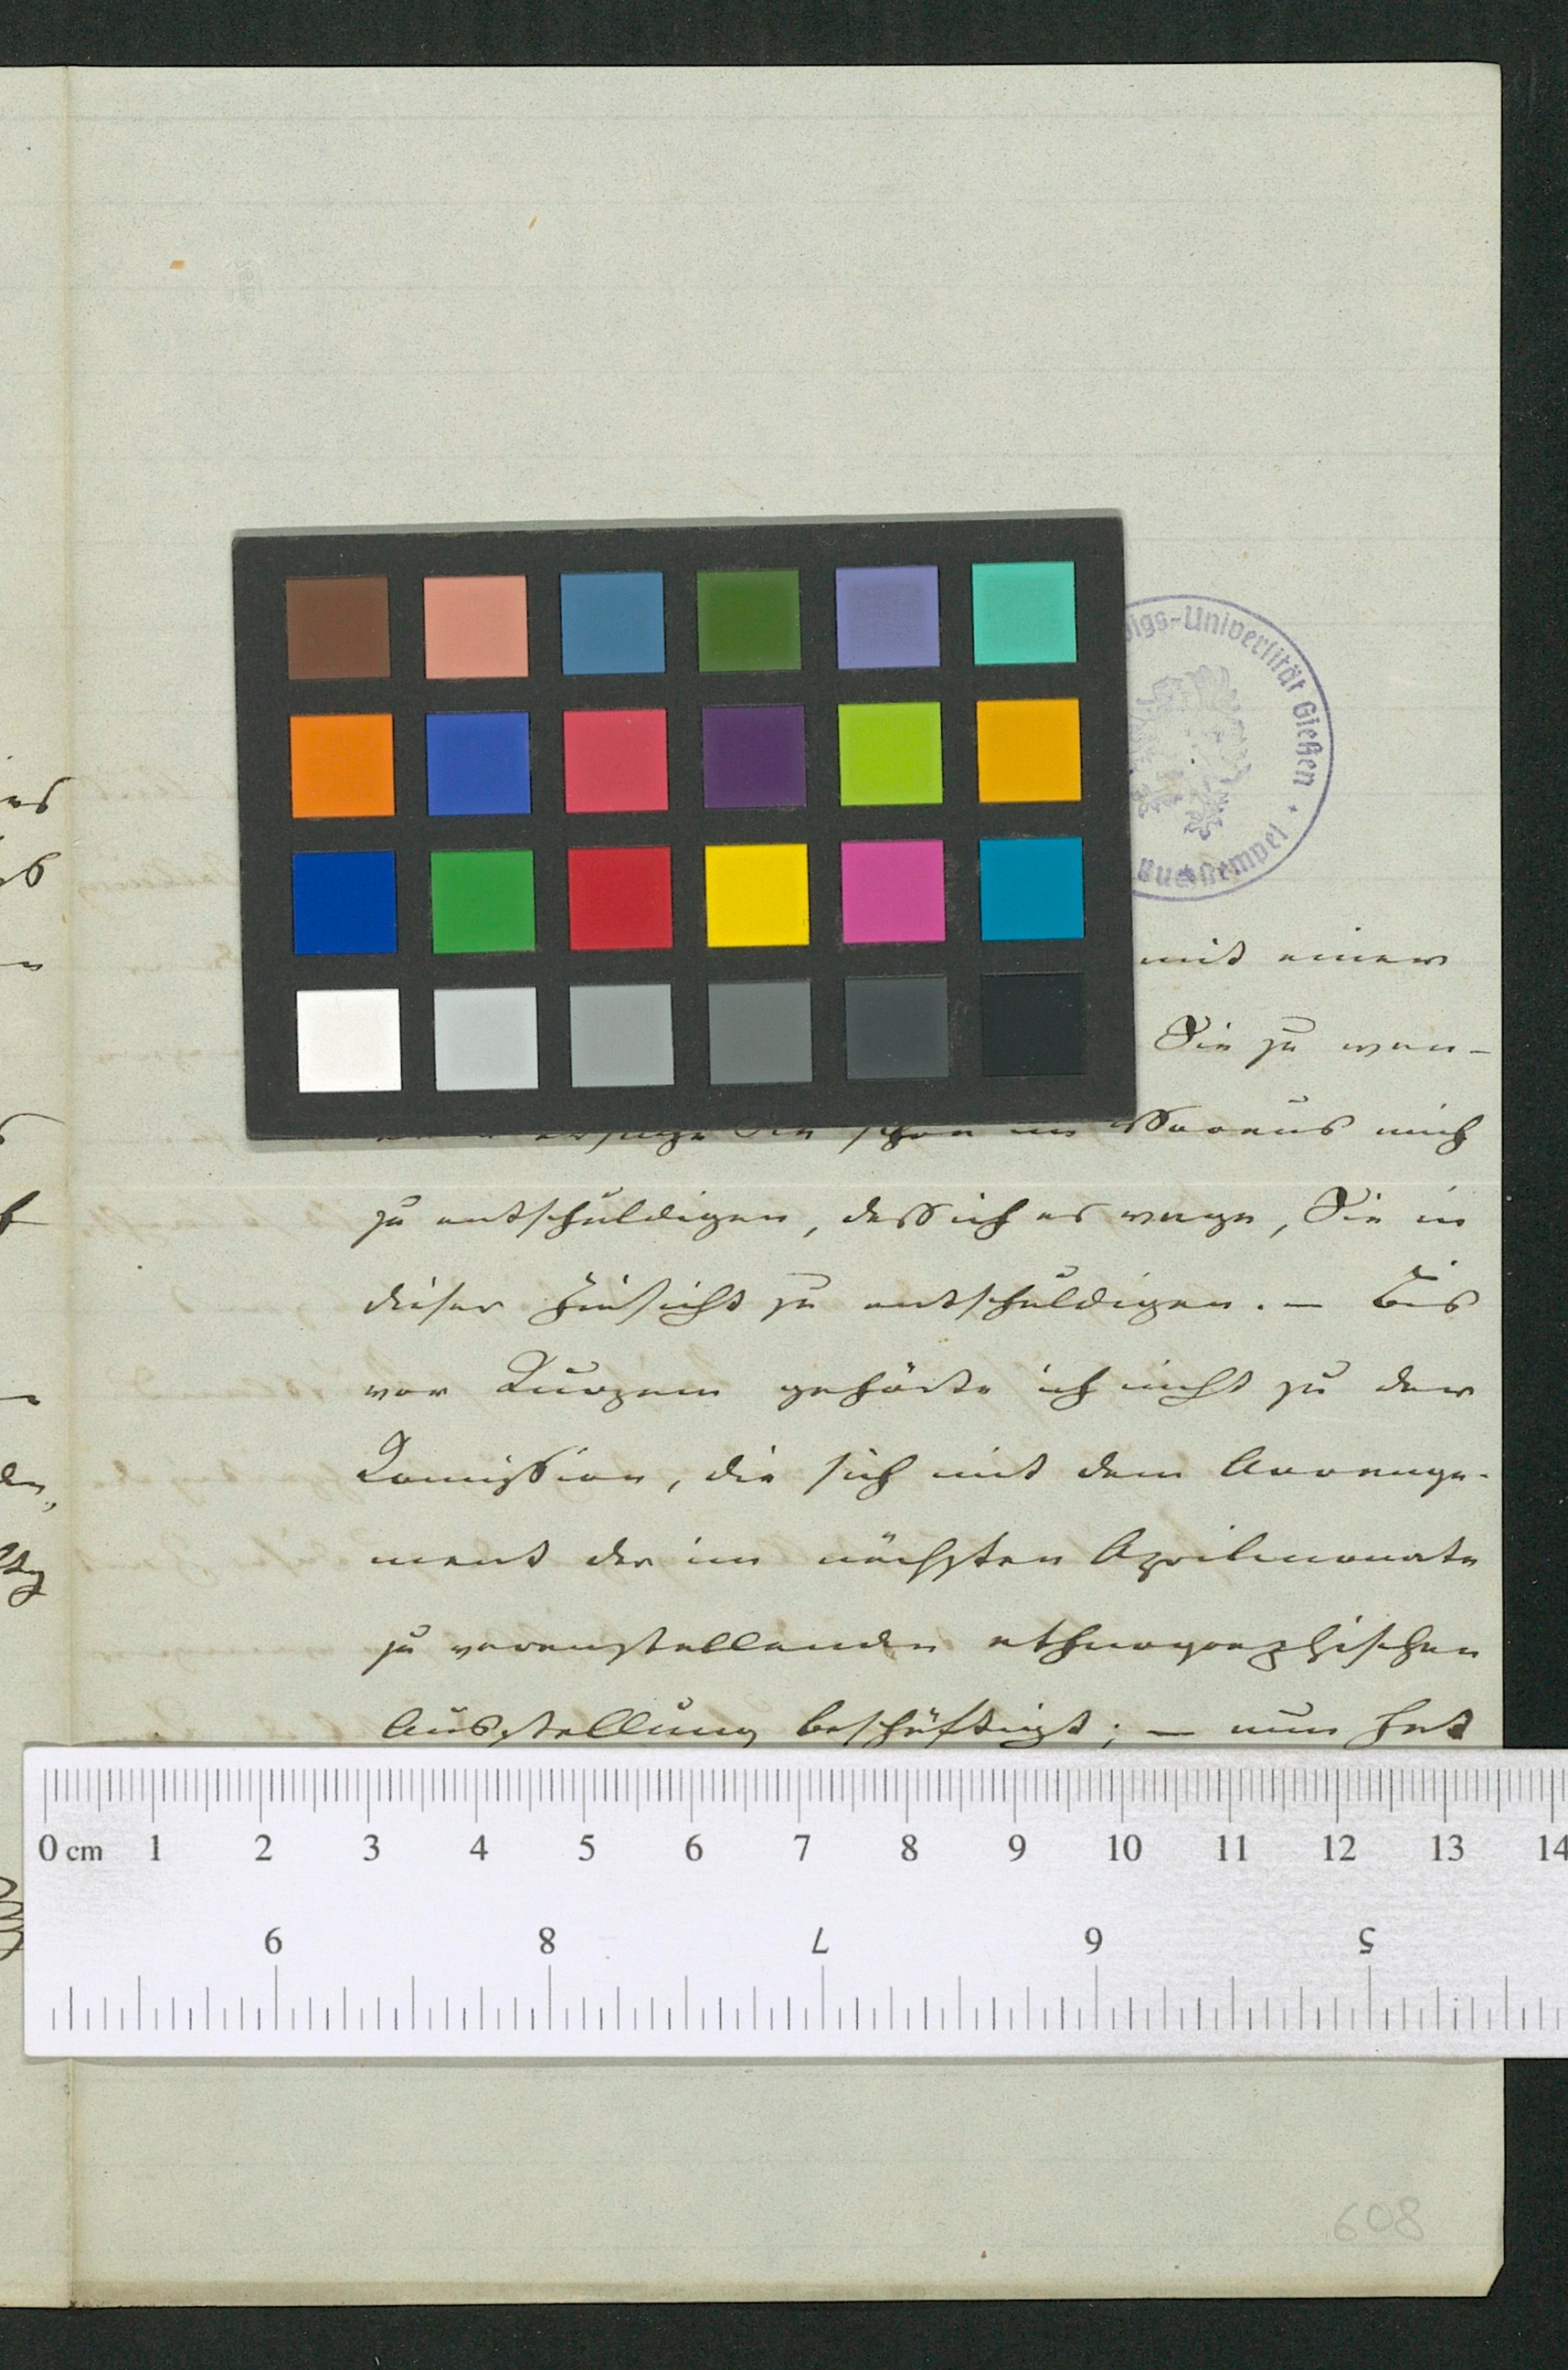 igs-Universität Gießen
Buchstempel
mit einer
Sie zu wen-
Sie schon im Voraus mich
zu entschuldigen, dass ich es wage, Sie in
dieser Hinsicht zu entschuldigen. — Bis
vor Kurzem gehörte ich nicht zu der
Komission, die sich mit dem Arrange-
ment der im nächsten Aprilmonate
zu veranstallenden ethnographischen
Ausstellung beschäftigt; — nun hat
0 cm 1 2 3 4 5 6 7 8 9 10 11 12 13 14
9 8 7 6 5
608